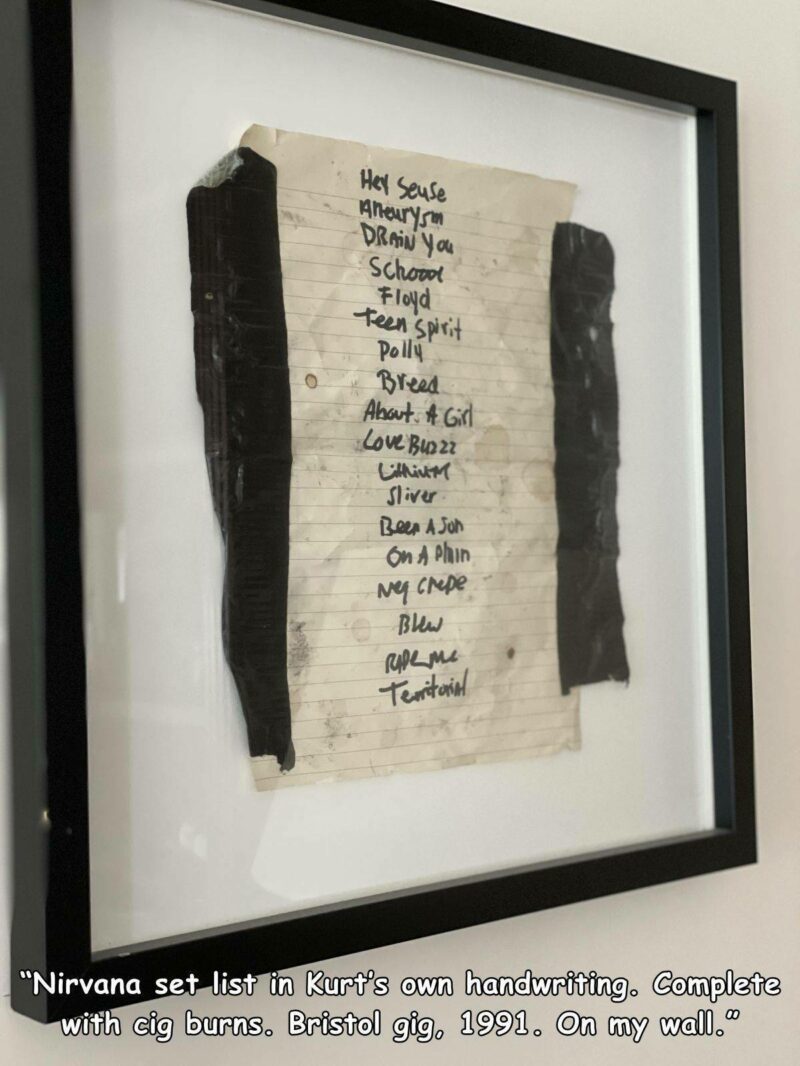 Hey Seuse
Aneurysm
DRAIN You
School
Floyd
Teen Spirit
Polly
Breed
About A Girl
Love Buzzz
Lithium
Sliver
Been A Son
On A Plain
Neg Crepe
Blew
RAPE Me
Territorial
"Nirvana set list in Kurt's own handwriting. Complete
with cig burns. Bristol gig, 1991. On my wall."